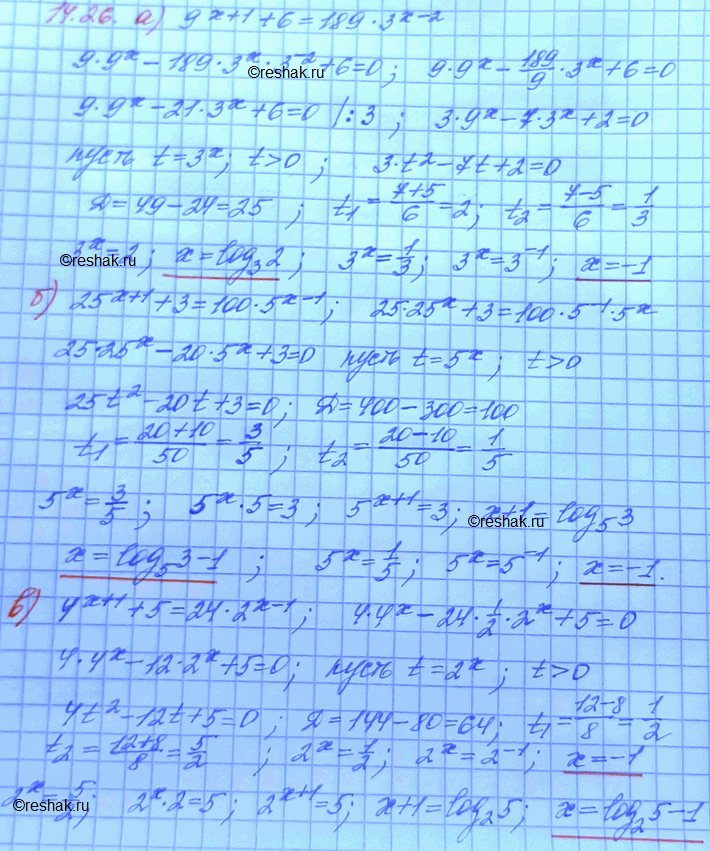 14.26. а) 9^(x+1) + 6 = 189 · 3^(x−2)
9·9^x − 189·3^x·3^(−2) + 6 = 0; 9·9^x − 189/9 · 3^x + 6 = 0
©reshak.ru
9·9^x − 21·3^x + 6 = 0 |:3; 3·9^x − 7·3^x + 2 = 0
пусть t = 3^x; t > 0; 3·t² − 7t + 2 = 0
Д = 49 − 24 = 25; t₁ = (7+5)/6 = 2; t₂ = (7−5)/6 = 1/3
3^x = 2; x = log₃2; 3^x = 1/3; 3^x = 3^(−1); x = −1
©reshak.ru
б) 25^(x+1) + 3 = 100·5^(x−1); 25·25^x + 3 = 100·5^(−1)·5^x
25·25^x − 20·5^x + 3 = 0 пусть t = 5^x; t > 0
25t² − 20t + 3 = 0; Д = 400 − 300 = 100
t₁ = (20+10)/50 = 3/5; t₂ = (20−10)/50 = 1/5
5^x = 3/5; 5^x·5 = 3; 5^(x+1) = 3; x+1 = log₅3
©reshak.ru
x = log₅3 − 1; 5^x = 1/5; 5^x = 5^(−1); x = −1.
в) 4^(x+1) + 5 = 24·2^(x−1); 4·4^x − 24·1/2·2^x + 5 = 0
4·4^x − 12·2^x + 5 = 0; пусть t = 2^x; t > 0
4t² − 12t + 5 = 0; Д = 144 − 80 = 64; t₁ = (12−8)/8 = 1/2
t₂ = (12+8)/8 = 5/2; 2^x = 1/2; 2^x = 2^(−1); x = −1
2^x = 5/2; 2^x·2 = 5; 2^(x+1) = 5; x+1 = log₂5; x = log₂5 − 1
©reshak.ru